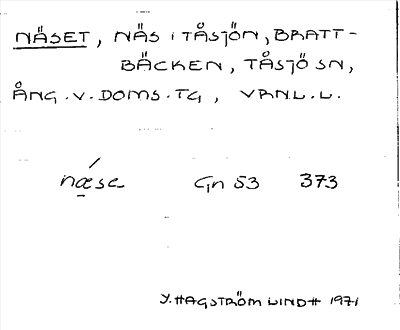 NÄSET, NÄS I TÅSJÖN, BRATT-
BÄCKEN, TÅSJÖ SN,
ÅNG.V.DOMS.TG, VRNL.L.
næ̱sé Gn 53 373
Y. HAGSTRÖM LINDH 1971